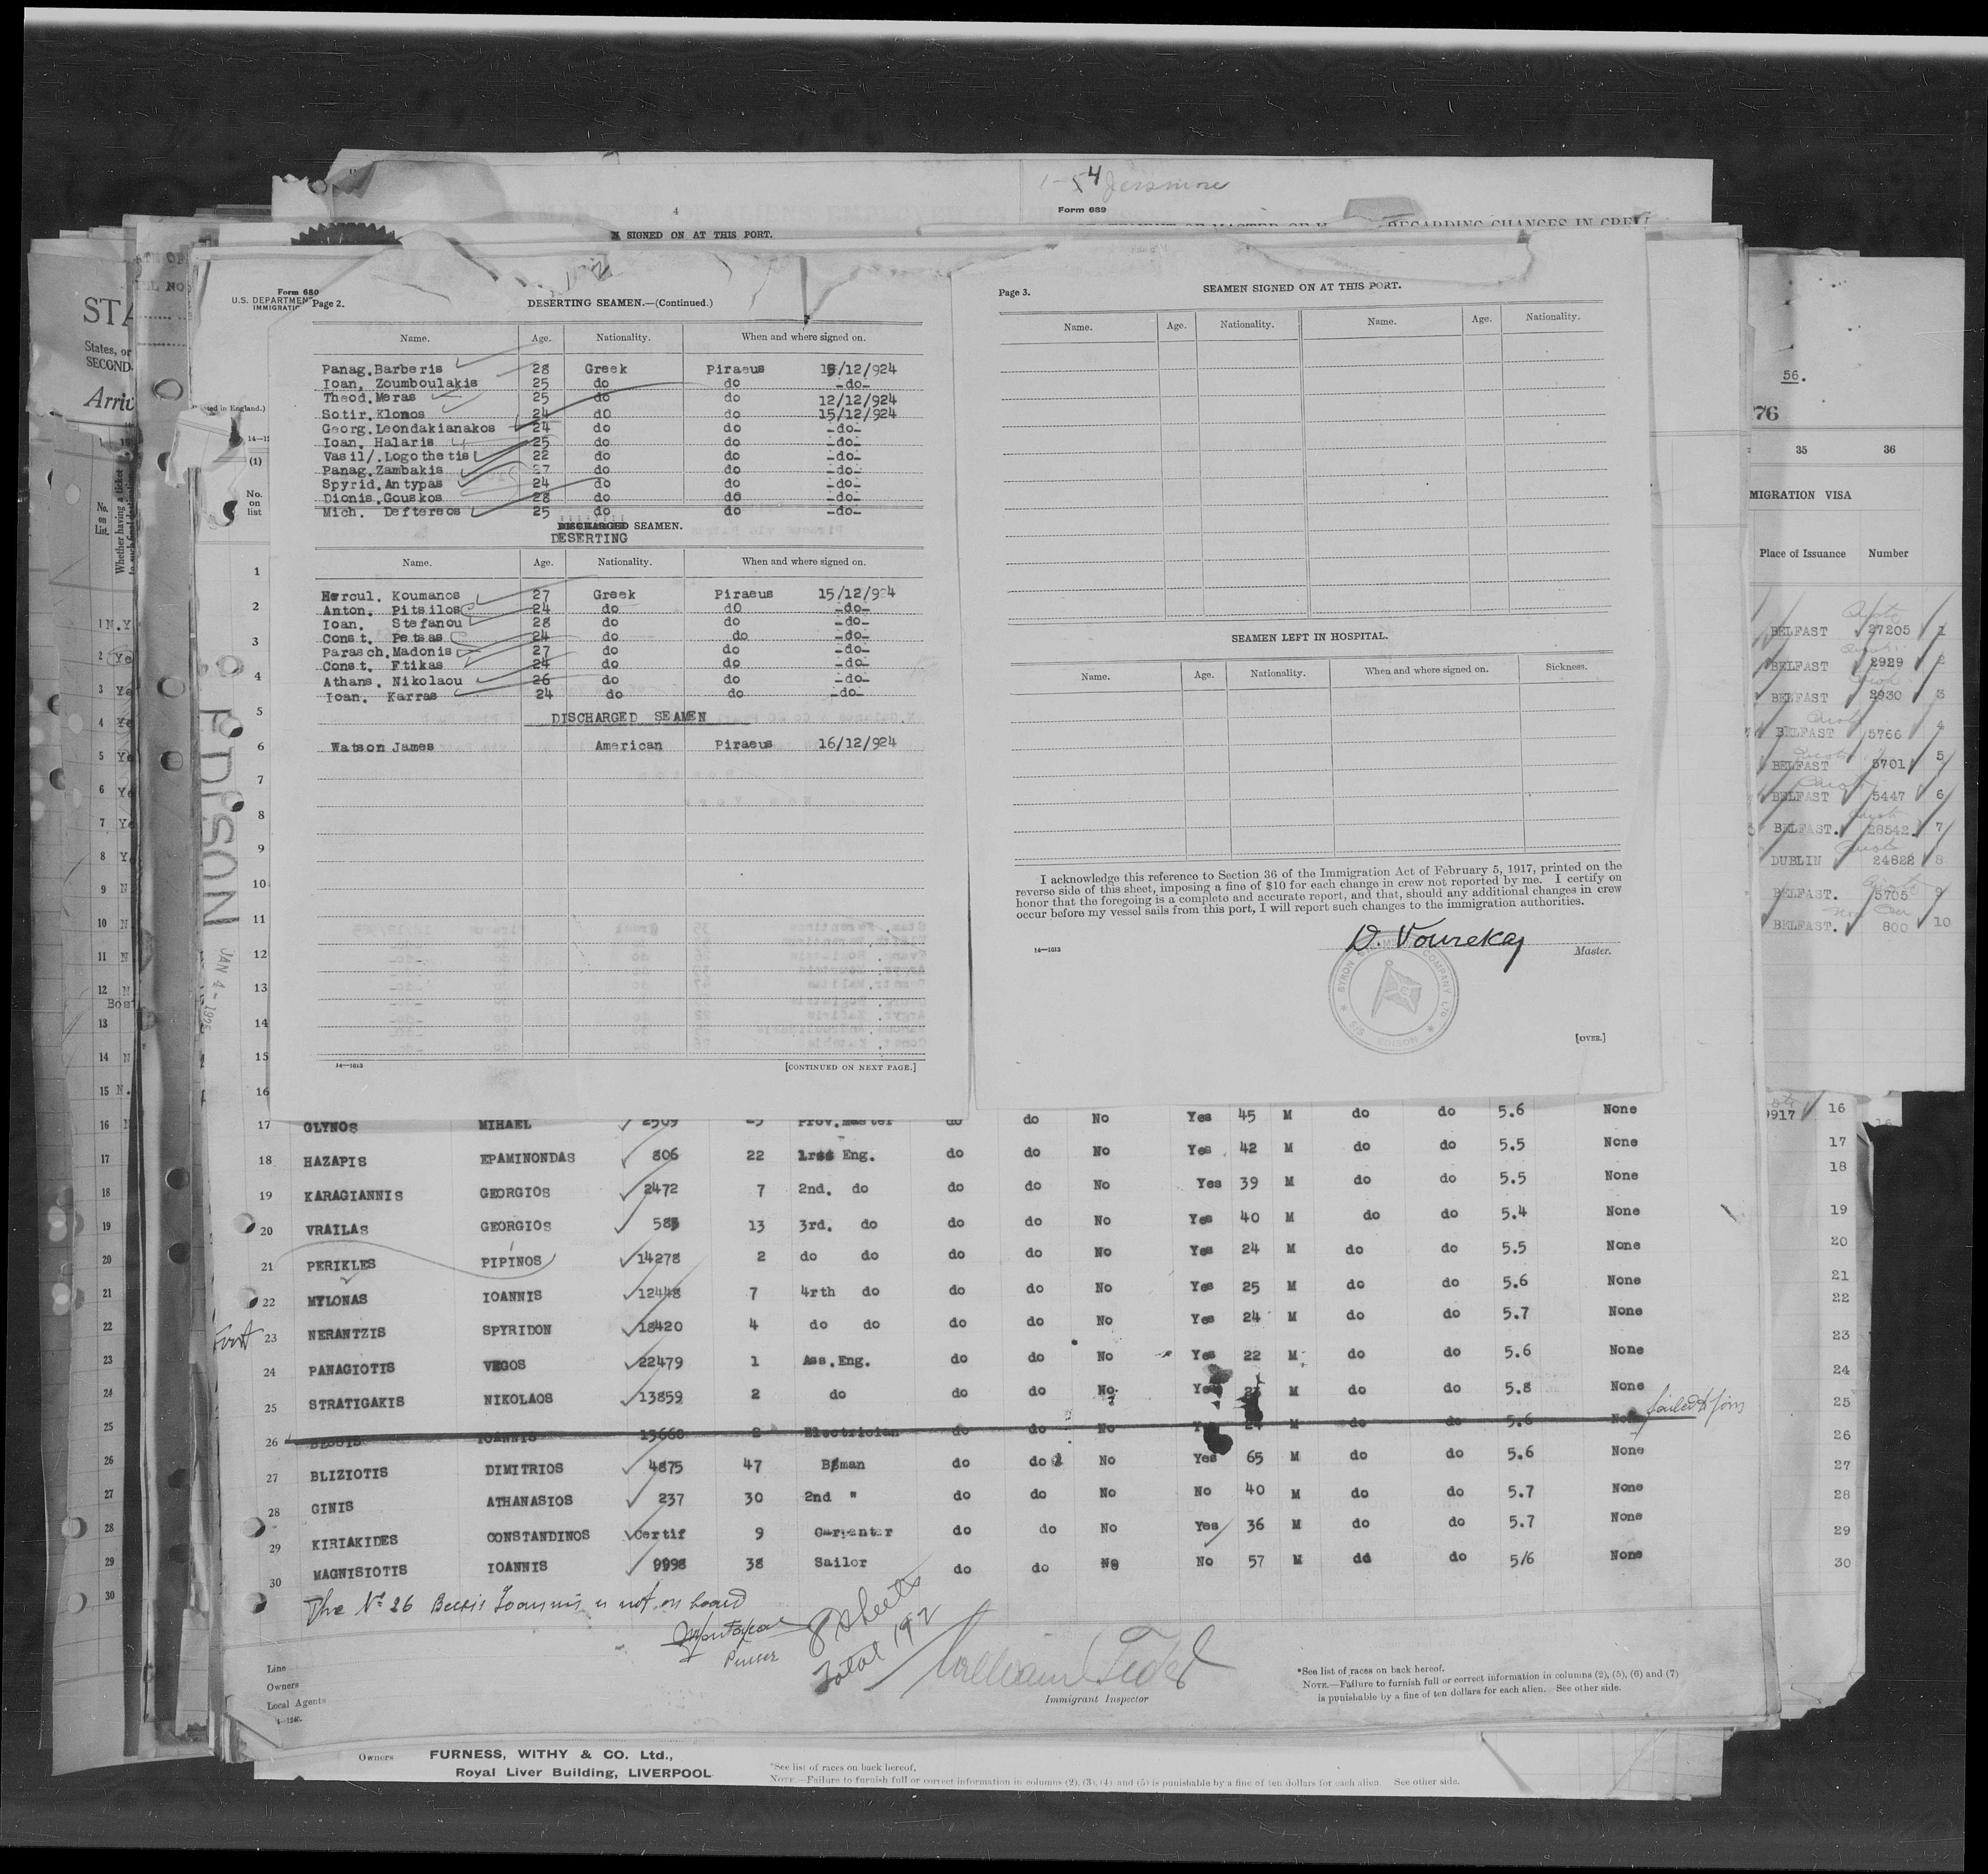 1-54 Jessmore
4
Form 689
SIGNED ON AT THIS PORT.
REGARDING CHANGES IN CREW
Form 680
U.S. DEPARTMENT
IMMIGRATI
Page 2.
DESERTING SEAMEN.—(Continued.)
Name. Age. Nationality. When and where signed on.
Panag.Barberis 28 Greek Piraeus 15/12/924
Ioan, Zoumboulakis 25 do do -do-
Theod.Meras 25 do do 12/12/924
Sotir.Klonos 24 dO do 15/12/924
Georg.Leondakianakos 24 do do -do-
Ioan. Halaris 25 do do -do-
Vasil/.Logothetis 22 do do -do-
Panag.Zambakis 27 do do -do-
Spyrid.Antypas 24 do do -do-
Dionis.Gouskos 28 do do -do-
Mich. Deftereos 25 do do -do-
DISCHARGED SEAMEN.
DESERTING
Name. Age. Nationality. When and where signed on.
Hercul. Koumanos 27 Greek Piraeus 15/12/924
Anton. Pitsilos 24 do dO -do-
Ioan. Stefanou 28 do do -do-
Const. Petsas 24 do do -do-
Parasch.Madonis 27 do do -do-
Const. Ftikas 24 do do -do-
Athans. Nikolaou 26 do do -do-
Ioan. Karras 24 do do -do-
DISCHARGED SEAMEN
Watson James American Piraeus 16/12/924
14—1013
[CONTINUED ON NEXT PAGE.]
Page 3.
SEAMEN SIGNED ON AT THIS PORT.
Name. Age. Nationality. Name. Age. Nationality.
SEAMEN LEFT IN HOSPITAL.
Name. Age. Nationality. When and where signed on. Sickness.
I acknowledge this reference to Section 36 of the Immigration Act of February 5, 1917, printed on the
reverse side of this sheet, imposing a fine of $10 for each change in crew not reported by me. I certify on
honor that the foregoing is a complete and accurate report, and that, should any additional changes in crew
occur before my vessel sails from this port, I will report such changes to the immigration authorities.
D. Vourekas
14—1013
Master.
BYRON STEAMSHIP COMPANY LTD
S/S EDISON
[OVER.]
STA
States, or
SECOND-
Arriv
No.
on
List.
Whether having a ticket
(1)
No.
on
list
EDISON
JAN 4-1925
56.
76
35 36
MIGRATION VISA
Place of Issuance Number
BELFAST 27205 1
BELFAST 2929 2
BELFAST 2930 3
BELFAST 5766 4
BELFAST 5701 5
BELFAST 5447 6
BELFAST. 28542. 7
DUBLIN 24628 8
BELFAST. 5705 9
BELFAST. 800 10
9917 16
17 GLYNOS MIHAEL 2509 Prov.Master do do No Yes 45 M do do 5.6 None
18 HAZAPIS EPAMINONDAS 806 22 1rst Eng. do do No Yes 42 M do do 5.5 None
19 KARAGIANNIS GEORGIOS 2472 7 2nd. do do do No Yes 39 M do do 5.5 None
20 VRAILAS GEORGIOS 583 13 3rd. do do do No Yes 40 M do do 5.4 None
21 PERIKLES PIPINOS 14278 2 do do do do No Yes 24 M do do 5.5 None
22 MYLONAS IOANNIS 12448 7 4rth do do do No Yes 25 M do do 5.6 None
23 NERANTZIS SPYRIDON 18420 4 do do do do No Yes 24 M do do 5.7 None
24 PANAGIOTIS VEGOS 22479 1 Ass.Eng. do do No Yes 22 M do do 5.6 None
25 STRATIGAKIS NIKOLAOS 13859 2 do do do No Yes M do do 5.8 None
26 IOANNIS 13660 2 Electrician do do No 24 M do do 5.6 None failed to join
27 BLIZIOTIS DIMITRIOS 4875 47 Bman do do No Yes 65 M do do 5.6 None
28 GINIS ATHANASIOS 237 30 2nd " do do No No 40 M do do 5.7 None
29 KIRIAKIDES CONSTANDINOS Certif 9 Carpenter do do No Yes 36 M do do 5.7 None
30 MAGNISIOTIS IOANNIS 9998 38 Sailor do do No No 57 M dd do 5/6 None
The No 26 Bessis Ioannis is not on board
Purser
8 sheets
Total 192
Immigrant Inspector
Line
Owners
Local Agents
*See list of races on back hereof.
NOTE.—Failure to furnish full or correct information in columns (2), (5), (6) and (7)
is punishable by a fine of ten dollars for each alien. See other side.
Owners FURNESS, WITHY & CO. Ltd.,
Royal Liver Building, LIVERPOOL
*See list of races on back hereof.
NOTE.—Failure to furnish full or correct information in columns (2), (3), (4) and (5) is punishable by a fine of ten dollars for each alien. See other side.